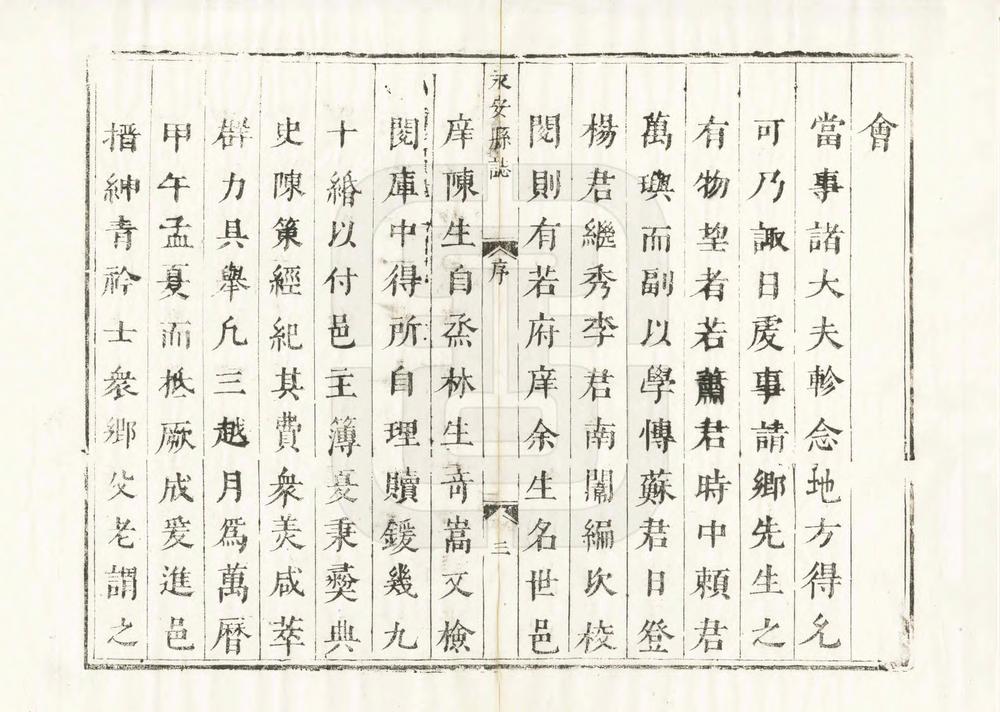 會
當事諸大夫軫念地方得允
可乃諏日虔事請鄉先生之
有物望者若蕭君時中賴君
萬璵而副以學慱蘇君日登
楊君繼秀李君南闈編次校
閱則有若府庠余生名世邑
永安縣誌
序
三
庠陳生自烝林生竒嵩文檢
閱庫中得所自理贖鍰幾九
十緡以付邑主簿憂秉彝典
史陳策經紀其費衆美咸萃
群力具舉凡三越月爲萬曆
甲午孟夏而抵厥成爰進邑
搢紳青衿士衆鄉父老謂之